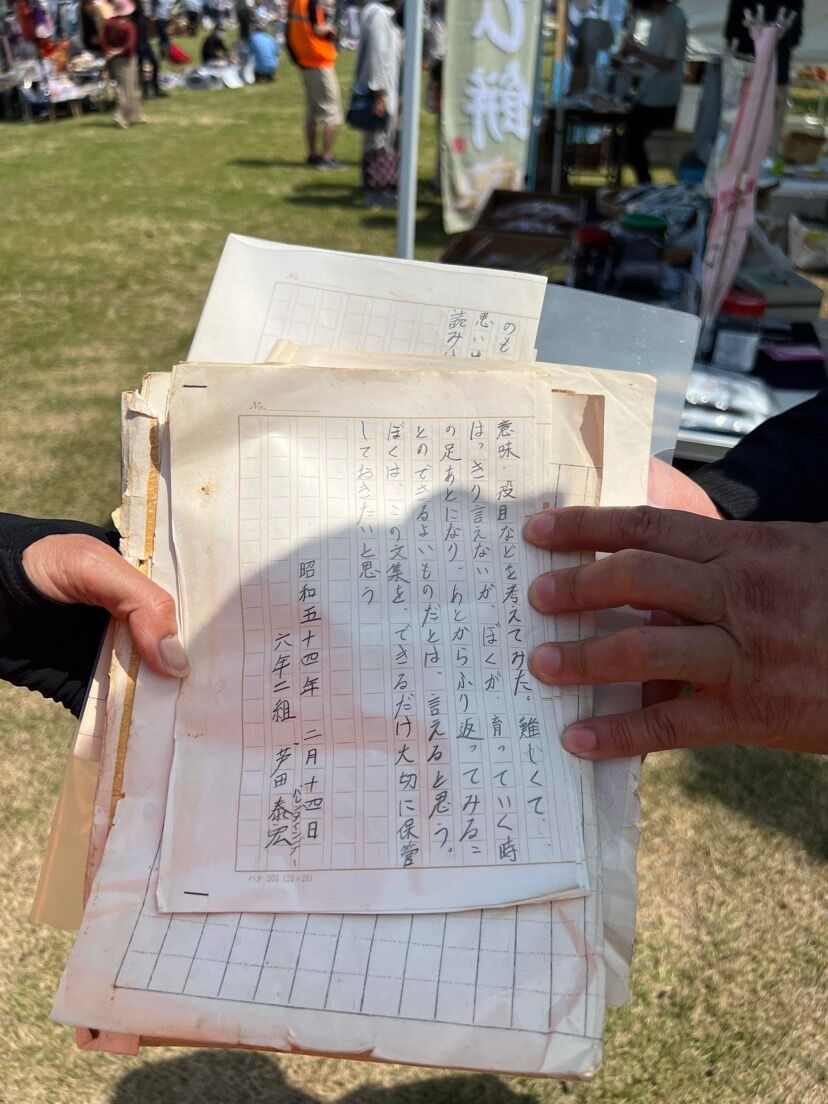 餅
No.
のも
思い
読み
No.
意味・役目などを考えてみた。難しくて、
はっきり言えないが、ぼくが、育っていく時
の足あとになり、あとからふり返ってみるこ
とのできるよいものだとは、言えると思う。
ぼくは、この文集を、できるだけ大切に保管
しておきたいと思う
昭和五十四年 二月十四日
バレンタインデー
六年二組 芦田泰宏
ハタ 203 (20×20)